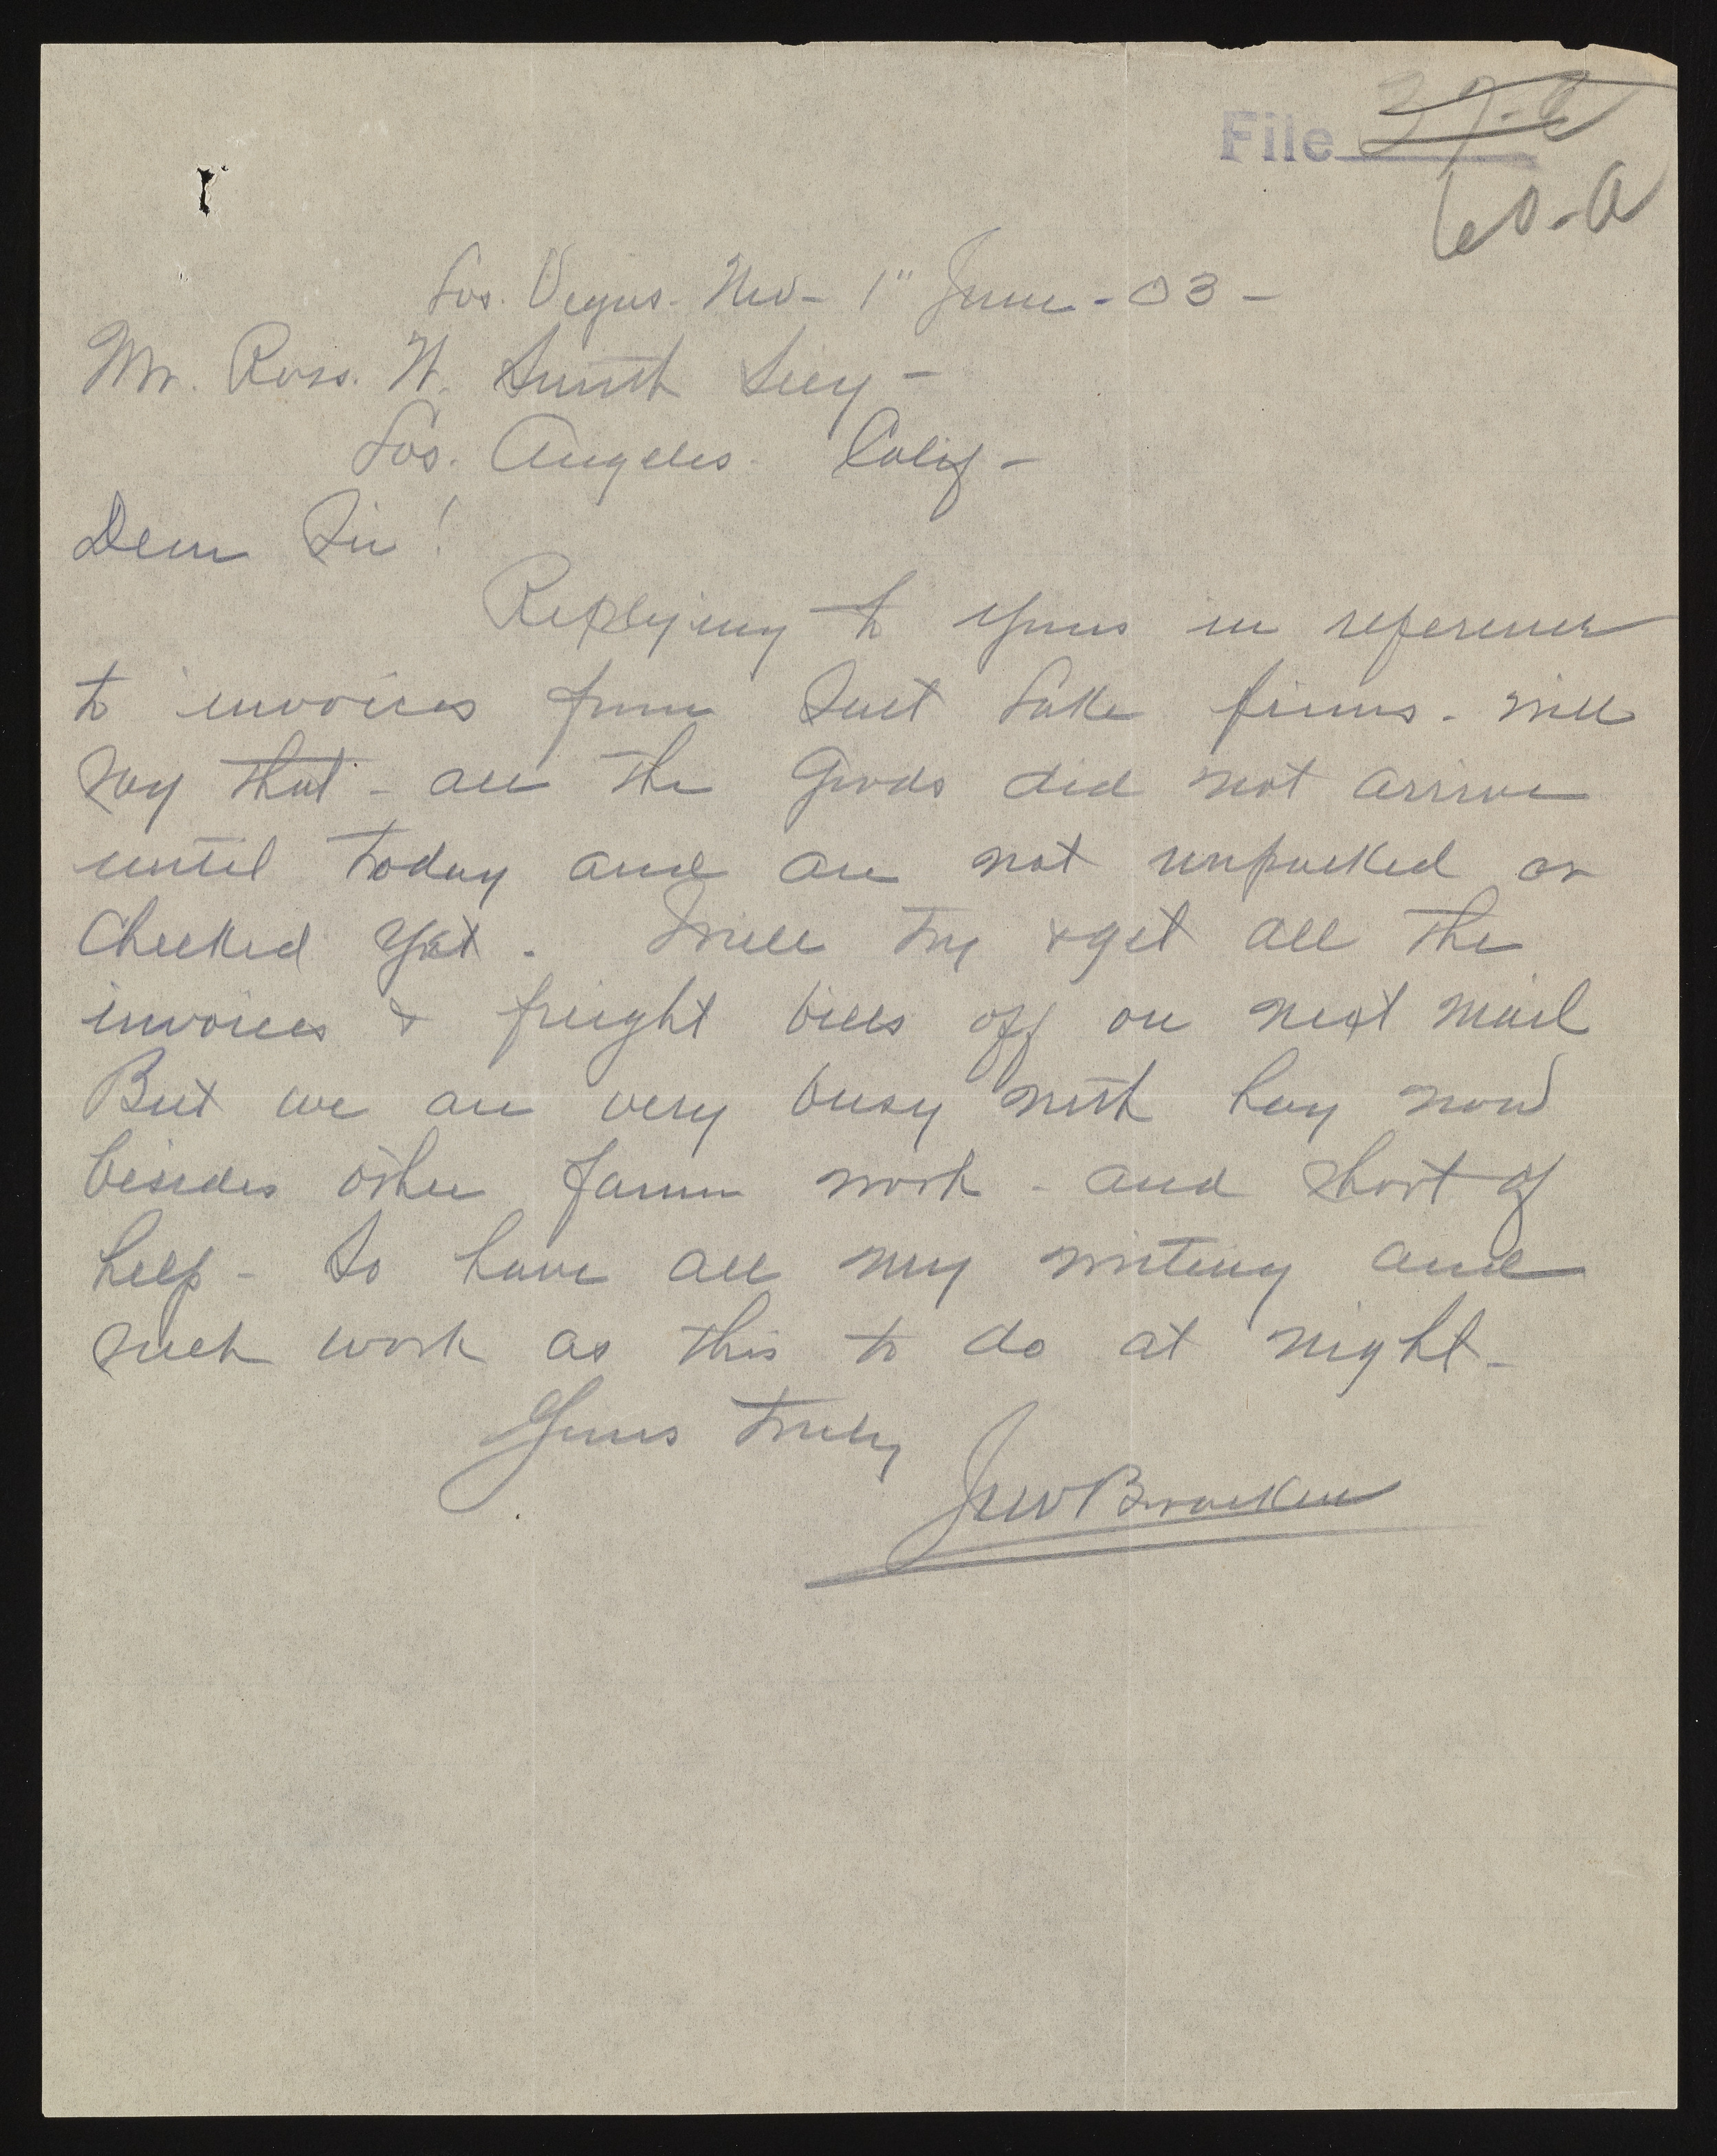 File 37-C
60-A
Los. Vegas. Nev- 1" June - 03 -
Mr. Ross. W. Smith Secy -
Los. Angeles. Calif -
Dear Sir!
Replying to yours in reference
to invoices from Salt Lake firms. will
say that - all the goods did not arrive
until today and are not unpacked or
checked yet. Will try & get all the
invoices & freight bills off on next mail
But we are very busy with hay now
besides other farm work - and short of
help - so have all my writing and
such work as this to do at night -
Yours truly
JW Bracken